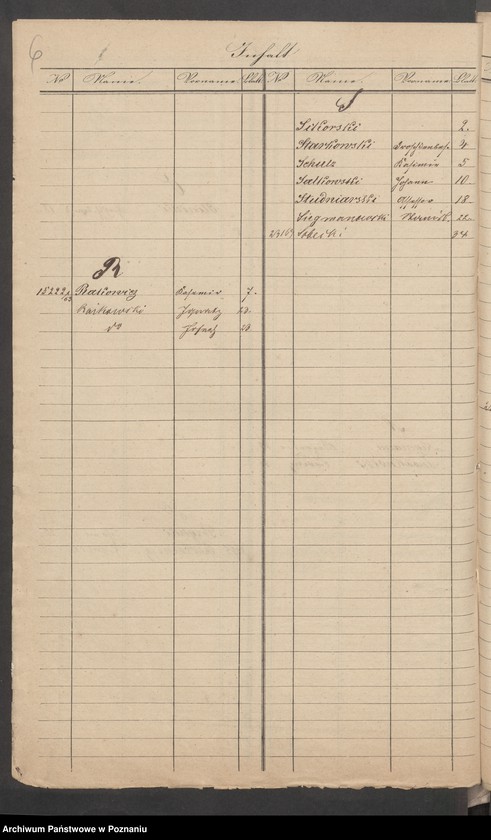 6
Inhalt
No Name. Vorname. Blatt No Name. Vorname. Blatt
S
Sikorski 2.
Starkowski 4
Schulz Kasimir 5
Satkowski Johann 10.
Studniarski 18.
Siegmanowski 22.
34
R
Rakowicz Kasimir 7.
Raikowski Ignatz 23.
do Josef 23
Archiwum Państwowe w Poznaniu